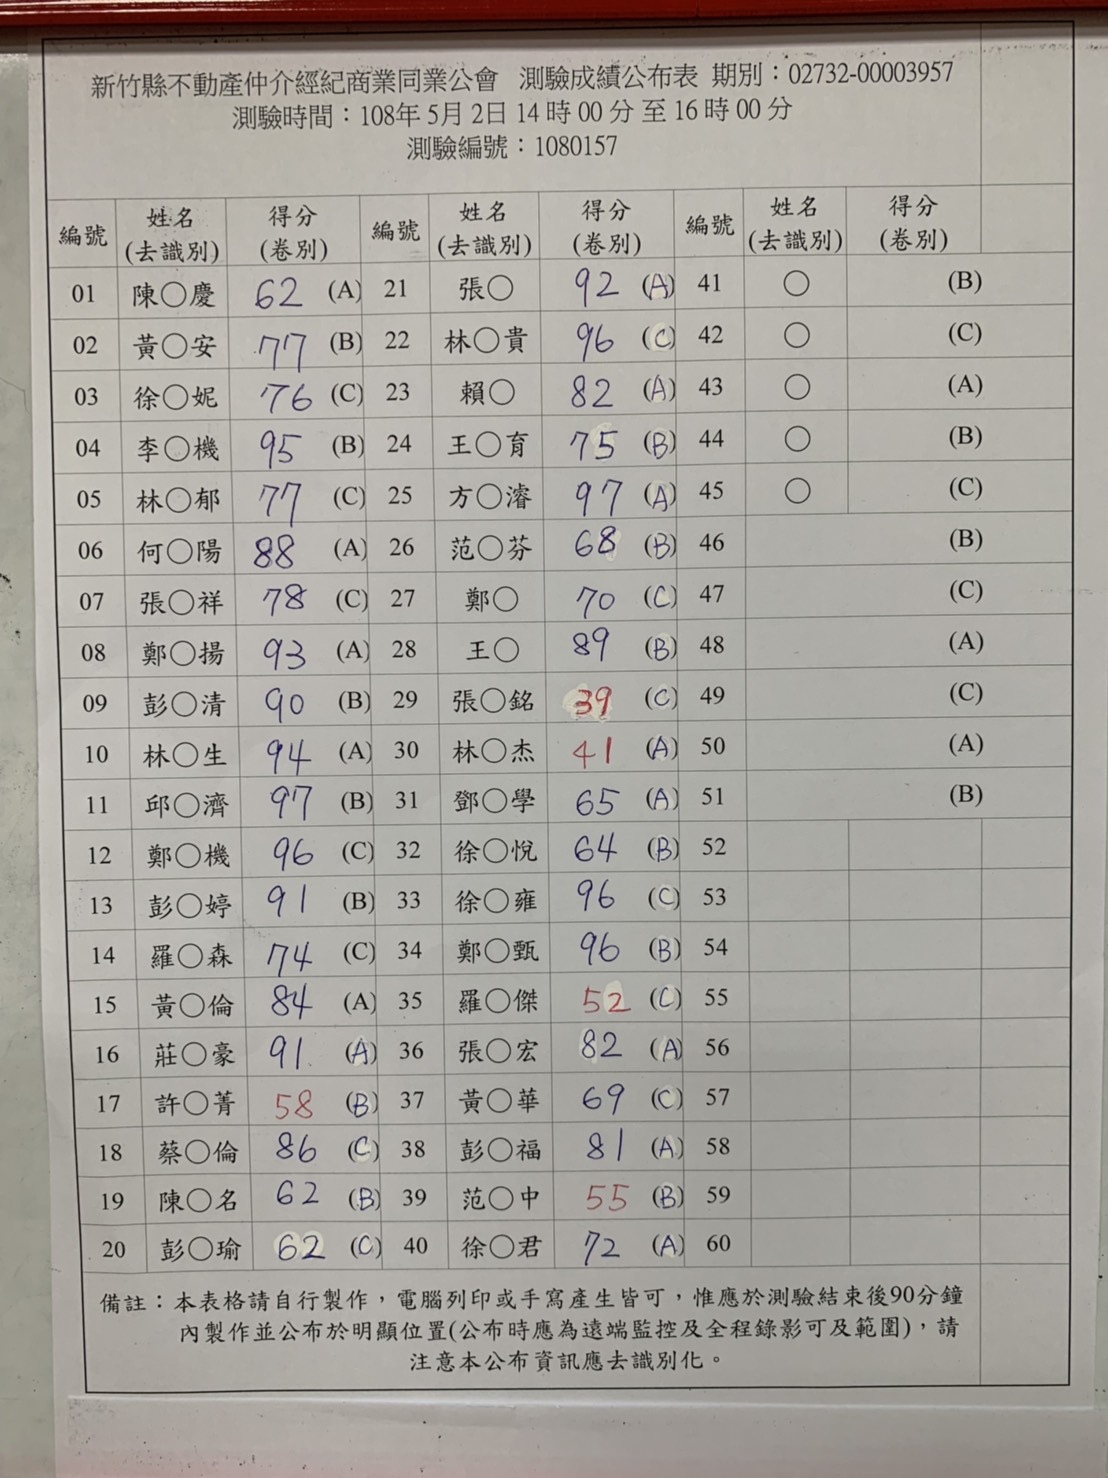 新竹縣不動產仲介經紀商業同業公會 測驗成績公布表 期別：02732-00003957
測驗時間：108年5月2日14時00分至16時00分
測驗編號：1080157
編號 姓名(去識別) 得分(卷別) 編號 姓名(去識別) 得分(卷別) 編號 姓名(去識別) 得分(卷別)
01 陳○慶 62 (A) 21 張○ 92 (A) 41 ○ (B)
02 黃○安 77 (B) 22 林○貴 96 (C) 42 ○ (C)
03 徐○妮 76 (C) 23 賴○ 82 (A) 43 ○ (A)
04 李○機 95 (B) 24 王○育 75 (B) 44 ○ (B)
05 林○郁 77 (C) 25 方○濬 97 (A) 45 ○ (C)
06 何○陽 88 (A) 26 范○芬 68 (B) 46 (B)
07 張○祥 78 (C) 27 鄭○ 70 (C) 47 (C)
08 鄭○揚 93 (A) 28 王○ 89 (B) 48 (A)
09 彭○清 90 (B) 29 張○銘 39 (C) 49 (C)
10 林○生 94 (A) 30 林○杰 41 (A) 50 (A)
11 邱○濟 97 (B) 31 鄧○學 65 (A) 51 (B)
12 鄭○機 96 (C) 32 徐○悅 64 (B) 52
13 彭○婷 91 (B) 33 徐○雍 96 (C) 53
14 羅○森 74 (C) 34 鄭○甄 96 (B) 54
15 黃○倫 84 (A) 35 羅○傑 52 (C) 55
16 莊○豪 91 (A) 36 張○宏 82 (A) 56
17 許○菁 58 (B) 37 黃○華 69 (C) 57
18 蔡○倫 86 (C) 38 彭○福 81 (A) 58
19 陳○名 62 (B) 39 范○中 55 (B) 59
20 彭○瑜 62 (C) 40 徐○君 72 (A) 60
備註：本表格請自行製作，電腦列印或手寫產生皆可，惟應於測驗結束後90分鐘
內製作並公布於明顯位置(公布時應為遠端監控及全程錄影可及範圍)，請
注意本公布資訊應去識別化。